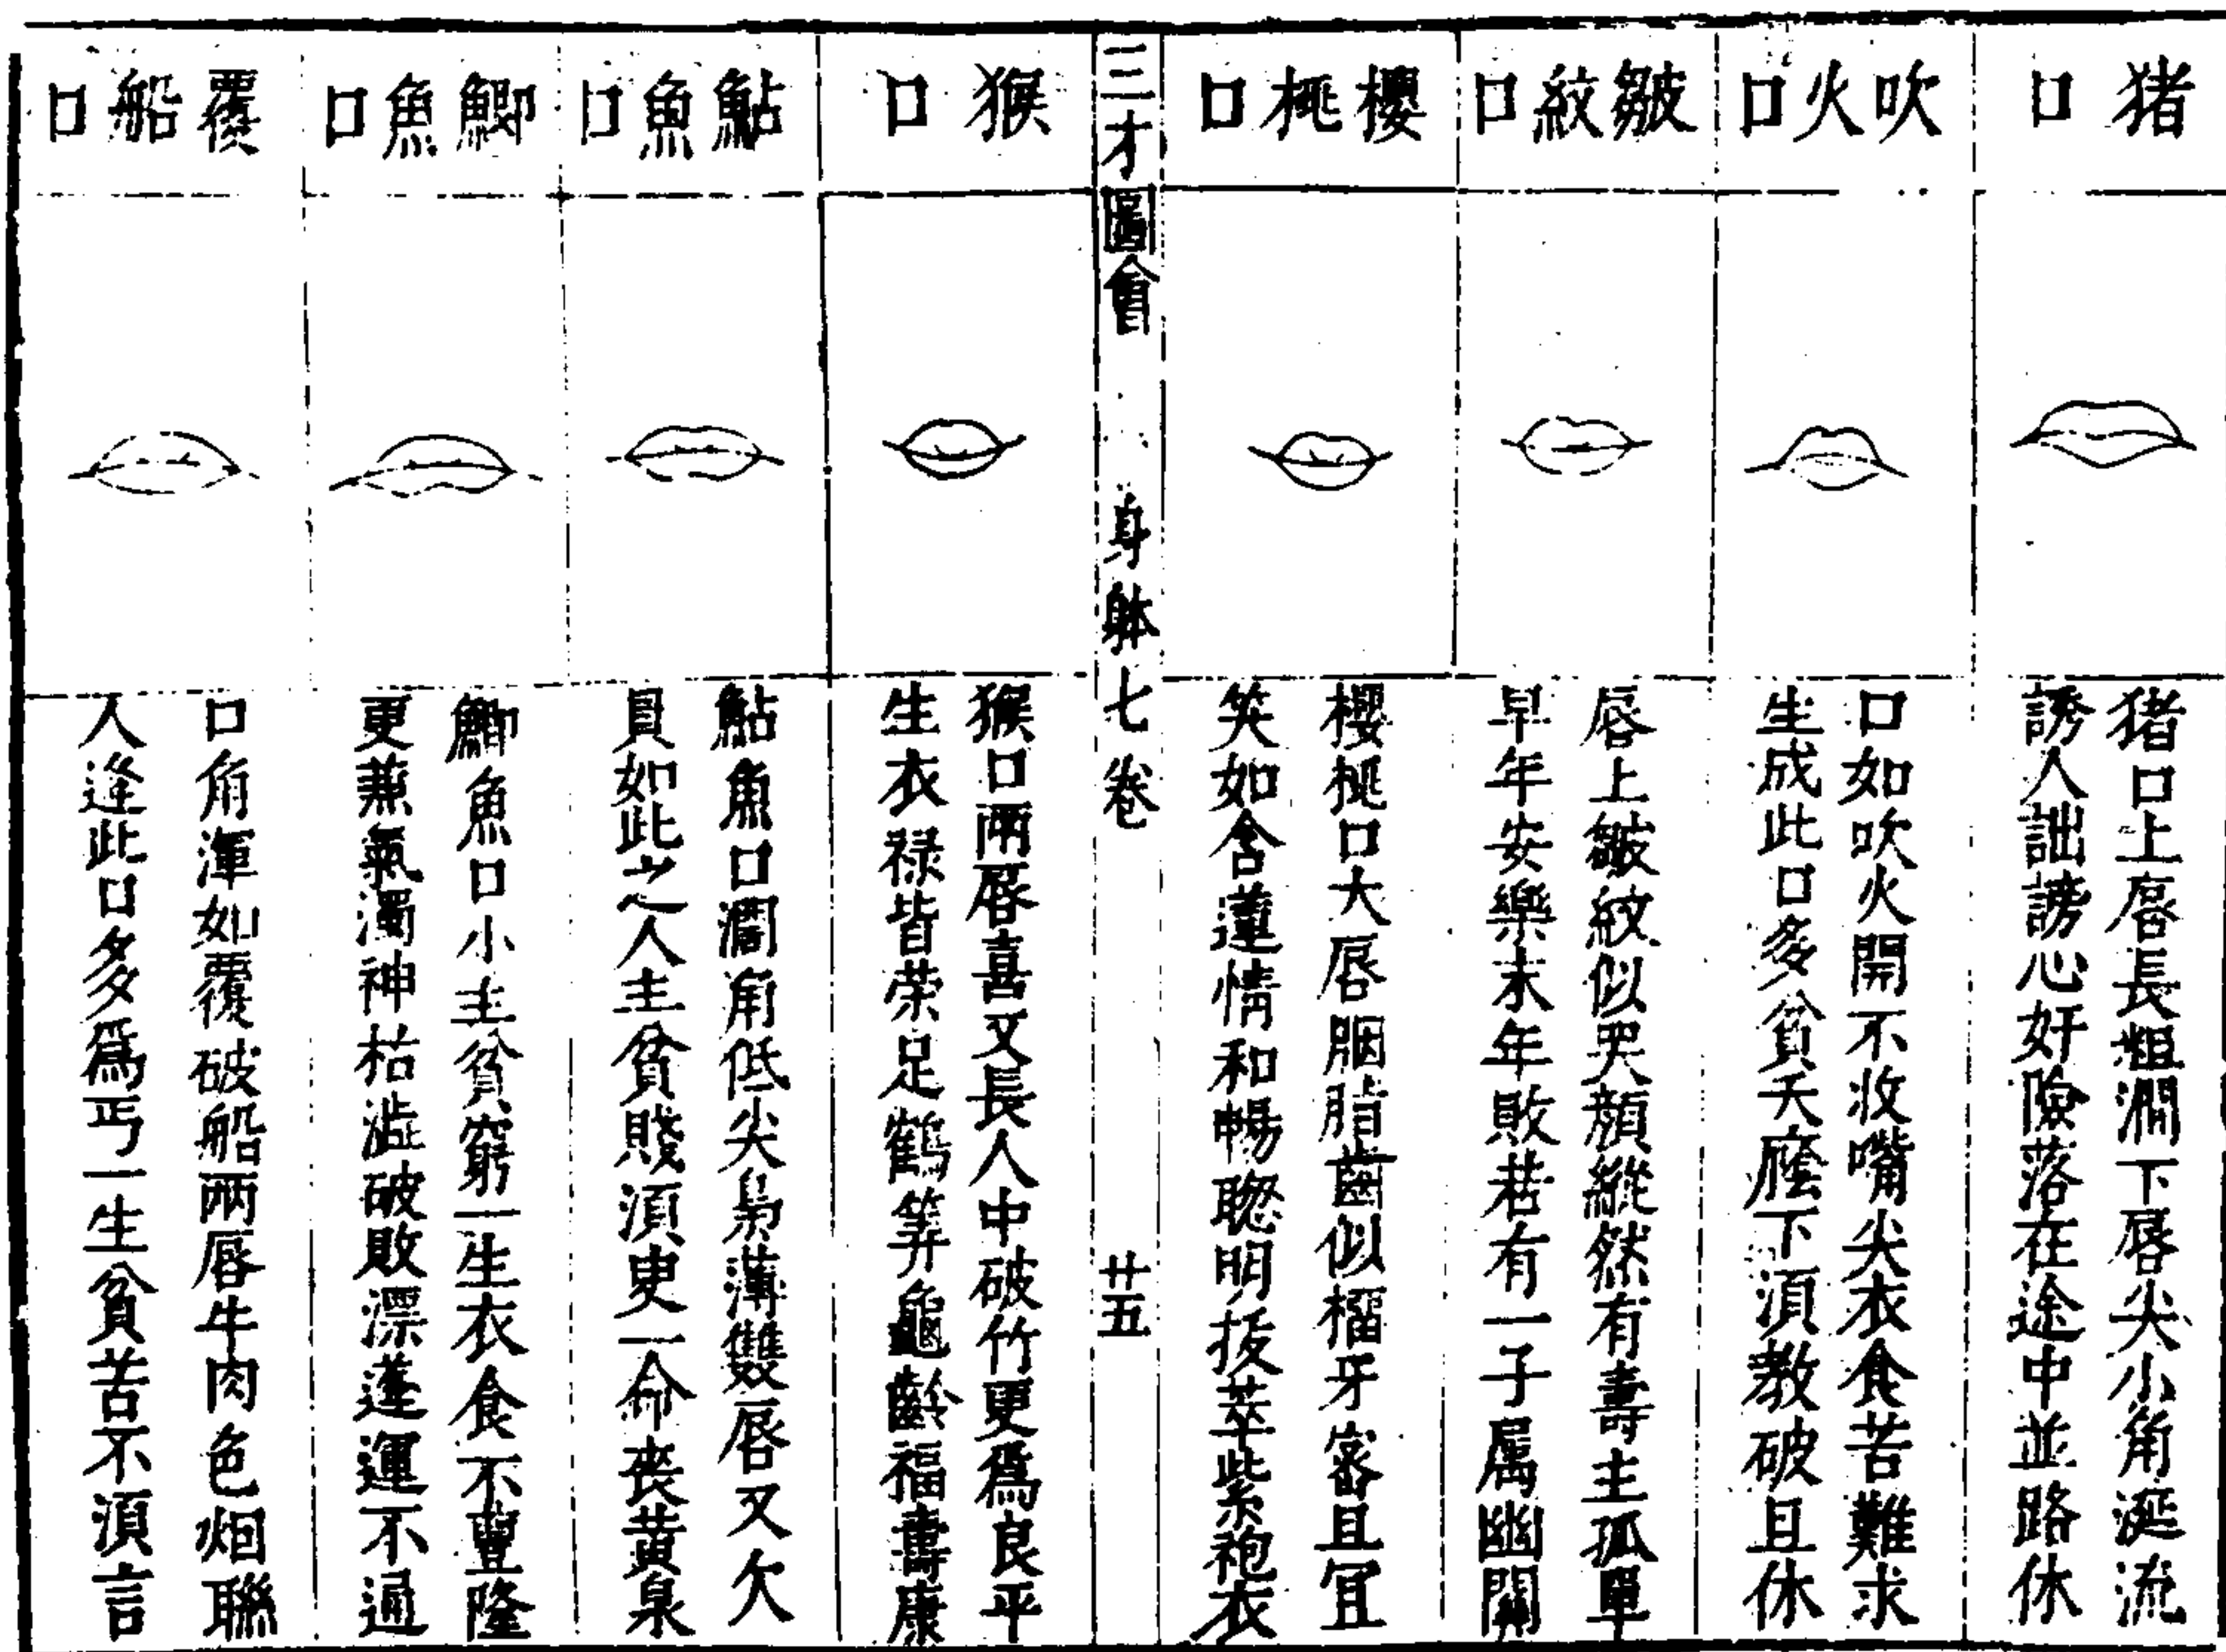 猪口
猪口上唇長粗濶下唇尖小角涎流
誘人詘謗心奸險落在途中並路休
吹火口
口如吹火開不收嘴尖衣食苦難求
生成此口多貧夭廕下須教破且休
皺紋口
唇上皺紋似哭顏縱然有壽主孤單
早年安樂末年敗若有一子属幽關
櫻桃口
櫻桃口大唇胭脂齒似榴牙密且宜
笑如含蓮情和暢聦明拔萃紫袍衣
三才圖會 身躰七卷 廿五
猴口
猴口兩唇喜又長人中破竹更爲良平
生衣禄皆荣足鶴筭龜齡福壽康
鮎魚口
鮎魚口濶角低尖梟薄雙唇又欠
貟如此之人主貧賤須臾一命丧黄泉
鯽魚口
鯽魚口小主貧窮一生衣食不豐隆
更蒹氣濁神枯澁破敗漂蓬運不通
覆船口
口角渾如覆破船兩唇牛肉色烟聯
人逢此口多爲丐一生貧苦不須言